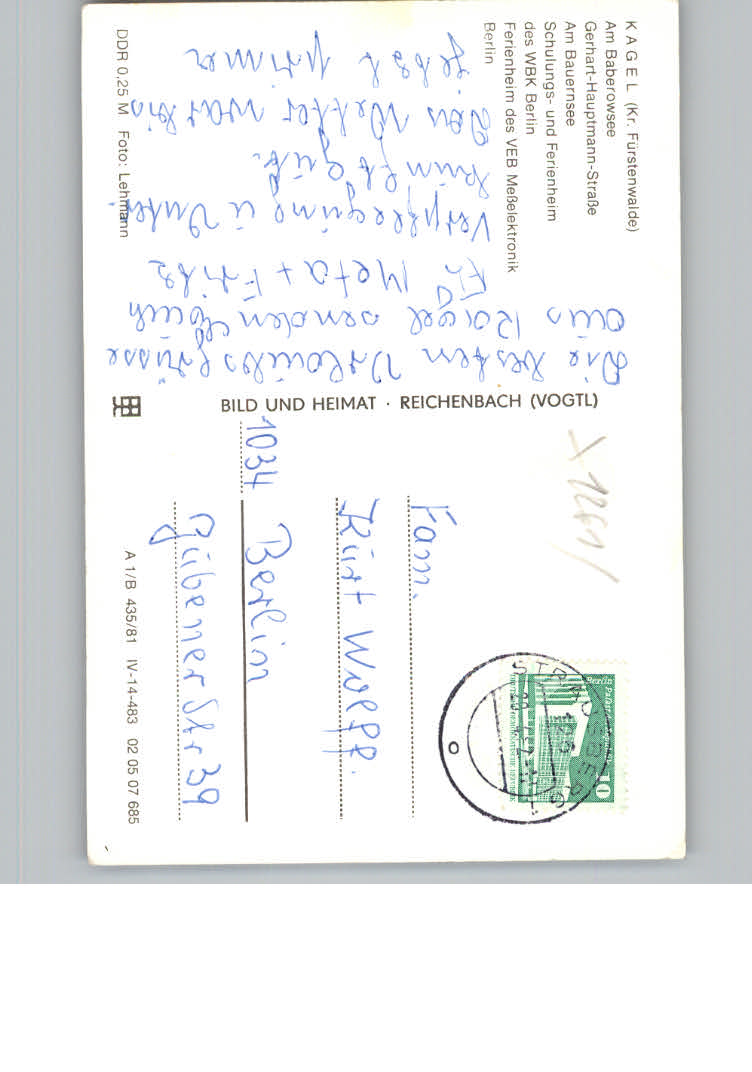 KAGEL (Kr. Fürstenwalde)
Am Baberowsee
Gerhart-Hauptmann-Straße
Am Bauernsee
Schulungs- und Ferienheim
des WBK Berlin
Ferienheim des VEB Meßelektronik
Berlin
Die besten Urlaubsgrüsse
aus Kagel senden Euch
Meta + Fritz
Verpflegung u Unter
kunft gut.
Das Wetter war bis
jetzt prima
DDR 0,25 M Foto: Lehmann
BILD UND HEIMAT · REICHENBACH (VOGTL)
Fam.
Kurt Woepp.
1034 Berlin
Gubener Str 39
A 1/B 435/81 IV-14-483 02 05 07 685
STRAUSBERG
10